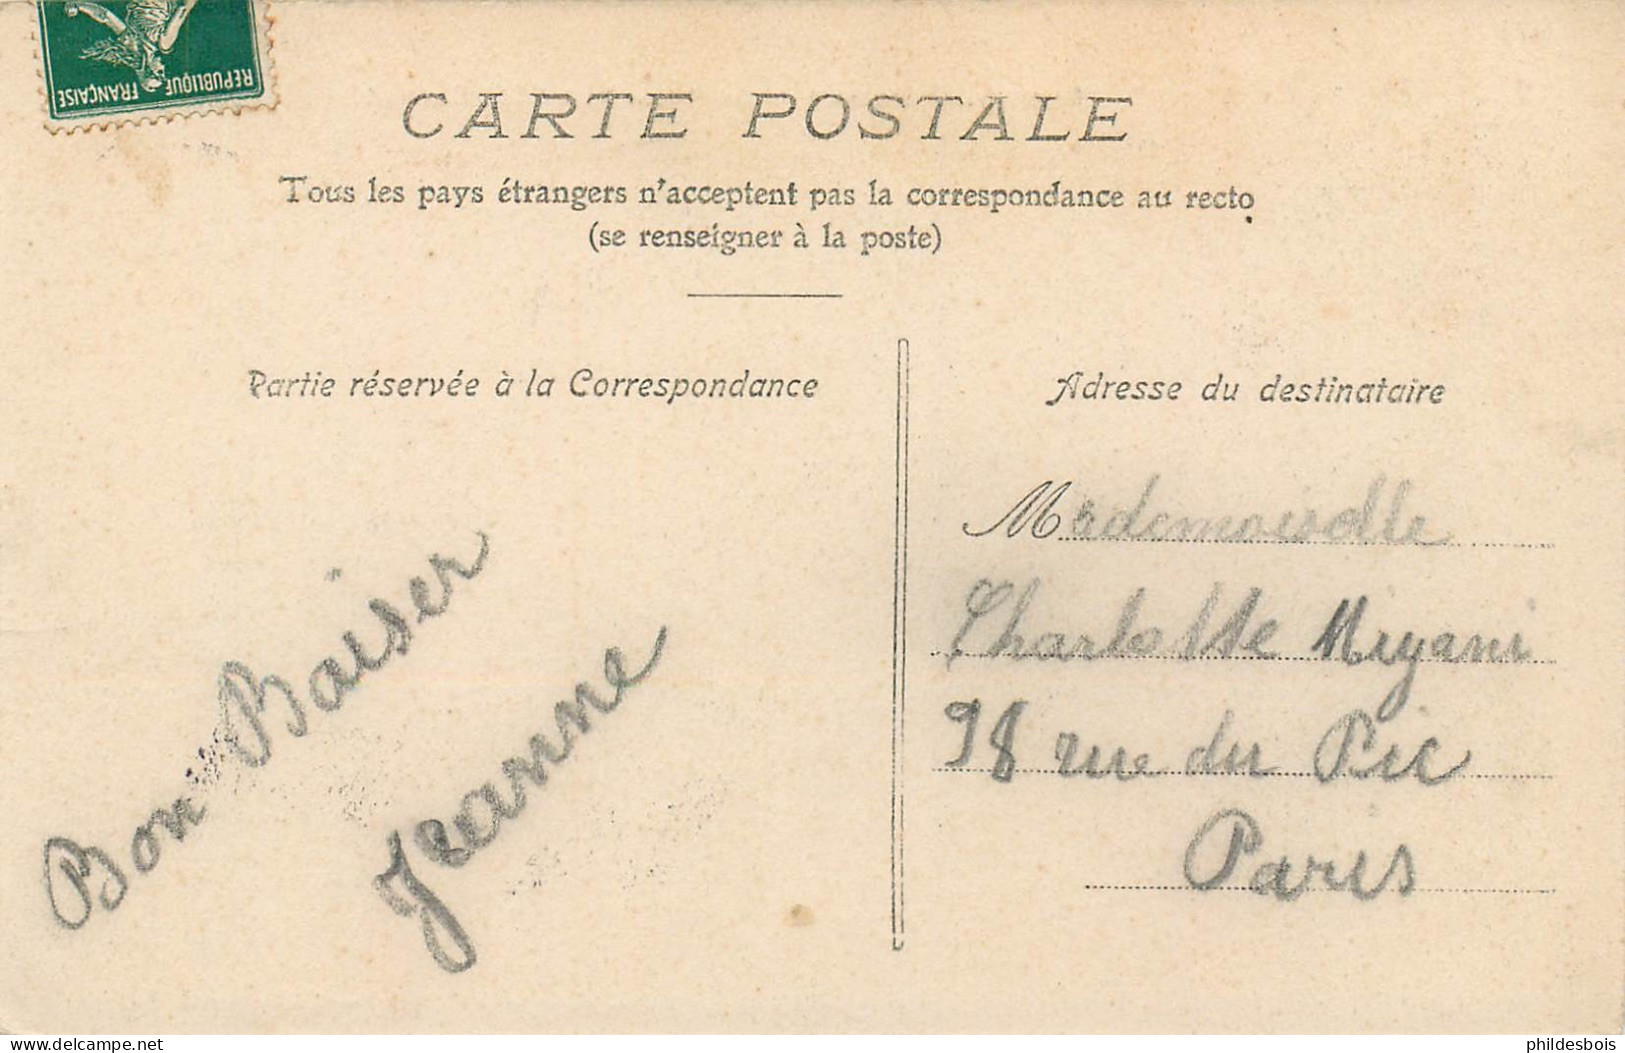 REPUBLIQUE FRANÇAISE
CARTE POSTALE
Tous les pays étrangers n'acceptent pas la correspondance au recto
(se renseigner à la poste)
Partie réservée à la Correspondance
Bon Baiser
Jeanne
Adresse du destinataire
Mademoiselle
Charlotte Migani
98 rue du Pic
Paris
delcampe.net
phildesbois